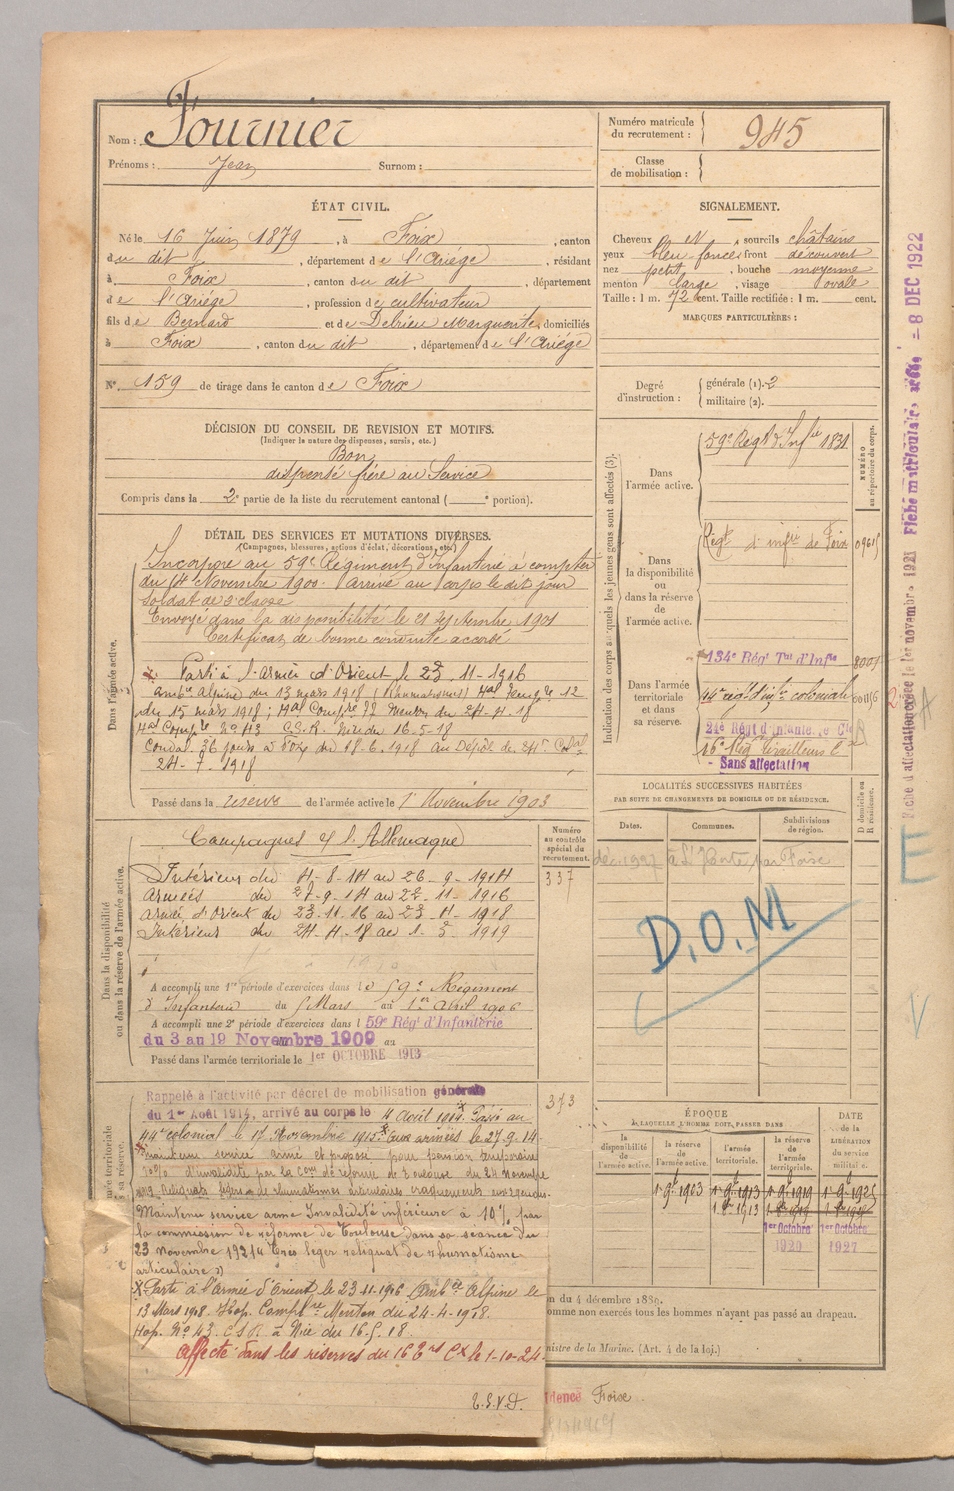 Nom : Fournier
Prénoms : Jean Surnom :
Numéro matricule du recrutement : 945
Classe de mobilisation :
ÉTAT CIVIL.
Né le 16 Juin 1879, à Foix, canton
du dit, département de l'Ariège, résidant
à Foix, canton du dit, département
de l'Ariège, profession de cultivateur
fils de Bernard et de Debrieu Marguerite, domiciliés
à Foix, canton du dit, département de l'Ariège
N° 159 de tirage dans le canton de Foix
SIGNALEMENT.
Cheveux N, sourcils châtains
yeux bleu foncés front découvert
nez petit, bouche moyenne
menton large, visage ovale
Taille : 1 m. 72 cent. Taille rectifiée : 1 m. cent.
MARQUES PARTICULIÈRES :
Degré d'instruction : générale (1). 2
militaire (2).
DÉCISION DU CONSEIL DE REVISION ET MOTIFS.
(Indiquer la nature des dispenses, sursis, etc.)
Bon
dispensé frère au Service
Compris dans la 2e partie de la liste du recrutement cantonal ( e portion).
DÉTAIL DES SERVICES ET MUTATIONS DIVERSES.
(Campagnes, blessures, actions d'éclat, décorations, etc.)
Dans l'armée active.
Incorporé au 59e Régiment d'Infanterie à compter
du 14 Novembre 1900. Arrivé au corps le dit jour
soldat de 2e classe
Envoyé dans la disponibilité le 21 septembre 1901
Certificat de bonne conduite accordé
Parti à l'Armée d'Orient le 23.11.1916
Ambce Alpine du 13 mars 1918 (Rhumatisme) Hal Temp. le 12
du 15 mars 1918 ; Hal Compre 77 Menton du 24-4-18
Hal Compre No 43 C.S.R. Nice du 16-5-18
Conval. 36 jours
24-7-1918
Passé dans la réserve de l'armée active le 1er Novembre 1903
Dans la disponibilité ou dans la réserve de l'armée active.
Campagnes c/ l'Allemagne
Intérieur du 4-8-14 au 26-9-1914
Armées du 27-9-14 au 22-11-1916
Armée d'Orient du 23-11-16 au 23-4-1918
Intérieur du 24-4-18 au 1-3-1919
Numéro au contrôle spécial du recrutement.
337
A accompli une 1re période d'exercices dans le 59e Régiment
d'Infanterie du 5 Mars au 1er Avril 1906
A accompli une 2e période d'exercices dans l 59e Régt d'Infanterie
du 3 au 19 Novembre 1909 au
Passé dans l'armée territoriale le 1er OCTOBRE 1913
373
Rappelé à l'activité par décret de mobilisation générale
du 1er Août 1914, arrivé au corps le 4 Août 1914. Passé au
44e colonial le 17 Novembre 1915. Aux armées le 27.9.14
maintenu service armé et proposé pour pension temporaire
10% d'invalidité par la Com de réforme de Toulouse du 24 Novembre
1919 Reliquats légers de rhumatismes articulaires craquements
Maintenu service armé Invalidité inférieure à 10% par
la commission de réforme de Toulouse dans sa séance du
23 novembre 1921 « Très léger reliquat de rhumatisme
articulaire »
X Parti à l'Armée d'Orient le 23.11.1916 Ambce Alpine le
13 Mars 1918. Hop. Complre Menton du 24-4-1918.
Hop. No 43. C S R. à Nice du 16.5.18.
Affecté dans les réserves du 16e Ers Cx le 1-10-24.
T.S.V.P.
Indication des corps auxquels les jeunes gens sont affectés (3).
NUMÉRO au répertoire du corps.
Dans l'armée active.
59e Régt d'Infie 1831
Dans la disponibilité ou dans la réserve de l'armée active.
Régt d'infie de Foix
Dans l'armée territoriale et dans sa réserve.
134e Régt Tal d'Infie
44e rég d'infie coloniale
21e Régt d'Infanterie Cle
16e Rég Tirailleurs
Sans affectation
LOCALITÉS SUCCESSIVES HABITÉES
PAR SUITE DE CHANGEMENTS DE DOMICILE OU DE RÉSIDENCE.
D domicile ou R résidence.
Dates. Communes. Subdivisions de région.
par Foix
D.O.M
ÉPOQUE
A LAQUELLE L'HOMME DOIT PASSER DANS
DATE de la LIBÉRATION du service militaire.
la disponibilité de l'armée active. la réserve de l'armée active. l'armée territoriale. la réserve de l'armée territoriale.
1 9bre 1903 1 9bre 1913 1 9bre 1919 1 9bre 1925
1 8bre 1913
1er Octobre 1920 1er Octobre 1927
du 4 décembre 1889.
comme non exercés tous les hommes n'ayant pas passé au drapeau.
nistre de la Marine. (Art. 4 de la loi.)
idence Foix
Fiche d'affectation créée le 1er novembre 1921 Fiche matriculaire - 8 DEC 1922